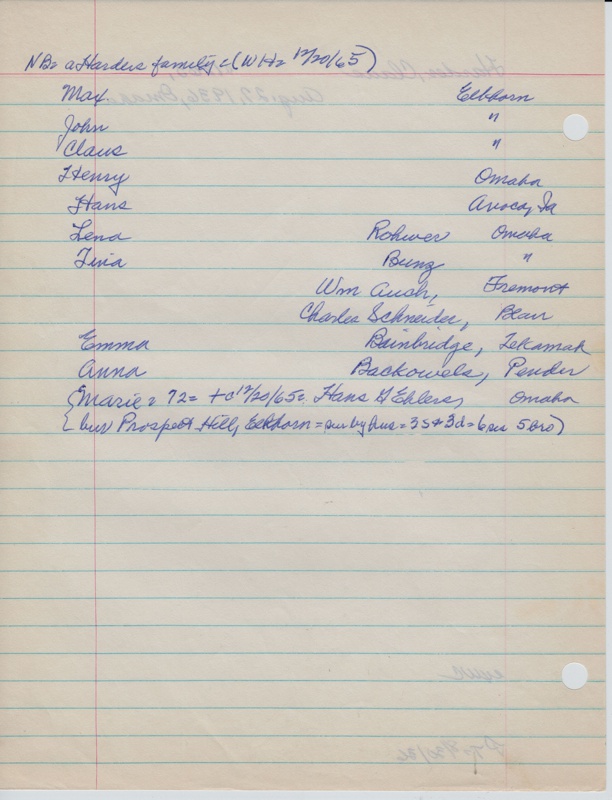 NB= a Harders family = (WH= 12/20/65)
Max. Elkhorn
John "
Claus "
Henry Omaha
Hans Avoca, Ia
Lena Rohwer Omaha
Tina Bunz "
Wm Aush, Fremont
Charles Schneider, Blair
Emma Bainbridge, Tekamah
Anna Backowels, Pender
{Marie = 72= +c 12/20/65= Hans G Ehlers, Omaha
{bur Prospect Hill, Elkhorn = sur by hus = 3s + 3d = 6 sis 5 bro)